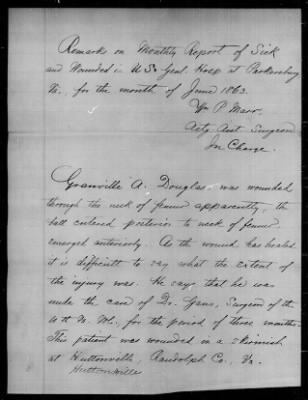 Remark on Monthly Report of Sick
and Wounded in U S Genl. Hosp at Parkersburg
Va., for the month of June 1863.
Wm P.
Actg Asst Surgeon
In Charge.
Granville A. Douglas was wounded
through the neck of femur apparently, the
ball entered posterior to neck of femur
emerged anteriorly. As the wound has healed
it is difficult to say what the extent of
the injury was. He says that he was
under the care of Dr. Gans, Surgeon of the
for the period of three months.
This patient was wounded in a skirmish
at Huttonville, Randolph Co., Va.
Huttonville